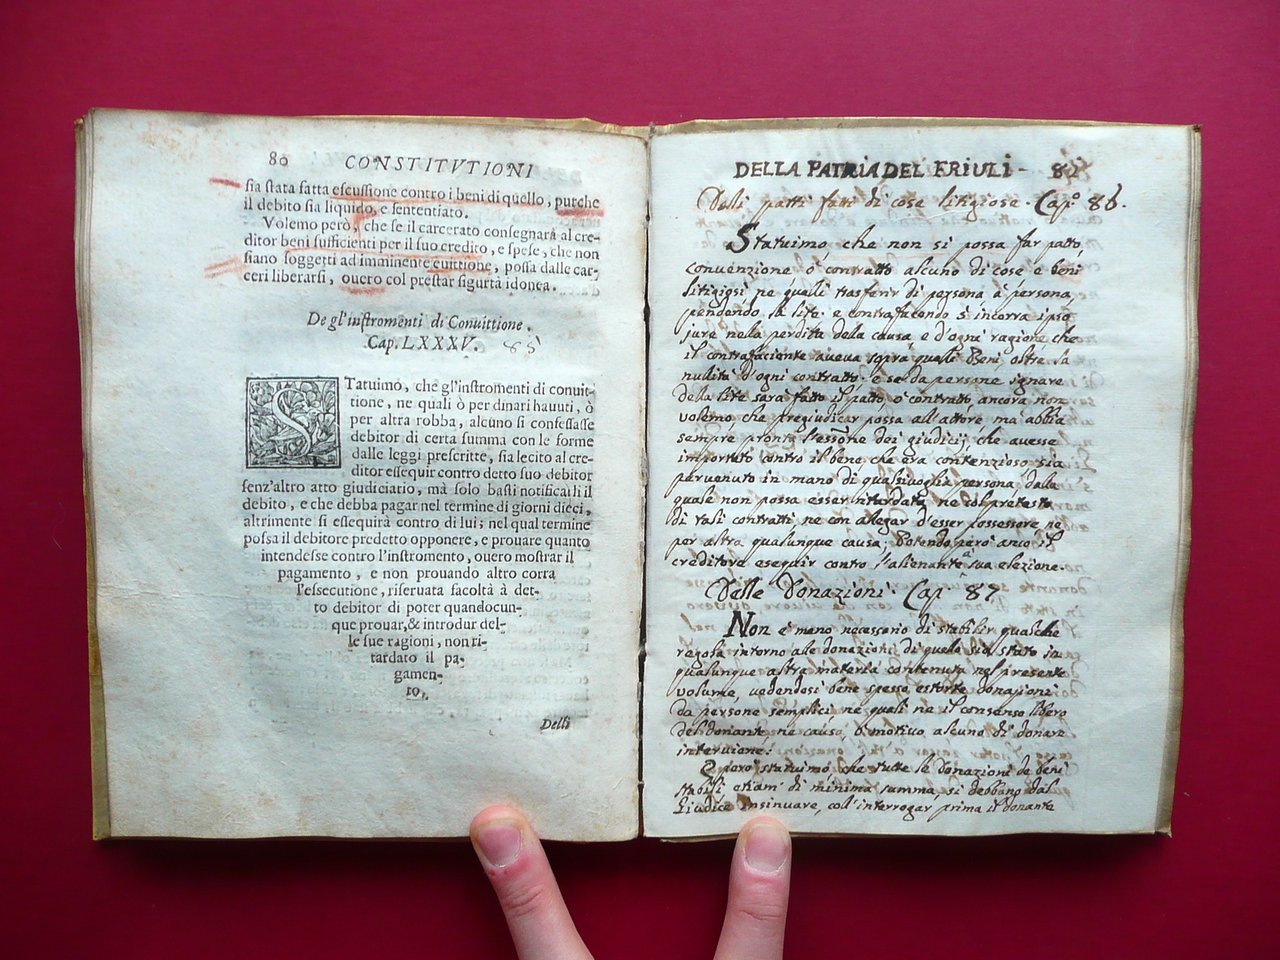 80 CONSTITVTIONI
sia stata fatta escussione contro i beni di quello, purche
il debito sia liquido, e sententiato.
Volemo però, che se il carcerato consegnarà al cre-
ditor beni sufficienti per il suo credito, e spese, che non
siano soggetti ad imminente euittione, possa dalle car-
ceri liberarsi, ouero col prestar sigurtà idonea.
De gl'instromenti di Conuittione.
Cap. LXXXV. 85
STatuimo, chè gl'instromenti di conuit-
tione, ne quali ò per dinari hauuti, ò
per altra robba, alcuno si confessasse
debitor di certa summa con le forme
dalle leggi prescritte, sia lecito al cre-
ditor essequir contro detto suo debitor
senz'altro atto giudiciario, mà solo basti notificarli il
debito, e che debba pagar nel termine di giorni dieci,
altrimente si essequirà contro di lui; nel qual termine
possa il debitore predetto opponere, e prouare quanto
intendesse contro l'instromento, ouero mostrar il
pagamento, e non prouando altro corra
l'essecutione, riseruata facoltà à det-
to debitor di poter quandocun-
que prouar, & introdur del-
le sue ragioni, non ri-
tardato il pa-
gamen-
to.
Delli
DELLA PATRIA DEL FRIULI - 81
Delli patti fatti di cose litigiose. Cap. 86.
Statuimo che non si possa far patto,
convenzione ò contratto alcuno di cose e beni
litigiosi ne quelli trasferir di persona à persona,
pendendo la lite. e contrafacendo s'incorra ipso
jure nella perdita della causa e d'ogni ragione che
il contrafaciente aueua sopra quelli Beni, oltre la
nullità d'ogni contratto. e se da persone ignare
della lite sarà fatto il patto, ò contratto ancora non
volemo che pregiudicar possa all'attore mà abbia
sempre pronta l'essone dei giudici; che auesse
importato contro il bene che era contenzioso sia
pervenuto in mano di qualsivoglia persona dalla
quale non possa esser intardata, ne col pretesto
di tali contratti, ne con allegar d'esser possessore ne
per altra qualunque causa; Potendo però anco il
creditore eseguir contro l'alienante à sua elezione.
Delle Donazioni. Cap. 87
Non è meno necessario di stabilir qualche
regola intorno alle donazioni di quello sia stato in
qualunque altra materia contenuta nel presente
volume, vedendosi bene spesso estorte donazioni
da persone semplici ne quali ne il consenso libero
del donante, ne causa, ò motivo alcuno di donare
interviene.
E però statuimo, che tutte le donazioni de beni
stabili etiam di minima summa, si debbano dal
Giudice insinuare, coll'interrogar prima il donante